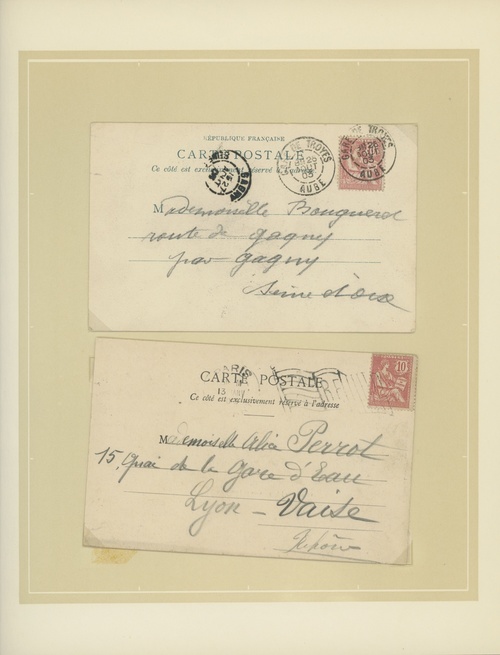 RÉPUBLIQUE FRANÇAISE
CARTE POSTALE
Ce côté est exclusivement réservé à
GARE DE TROYES
28
AOUT
03
AUBE
GARE DE TROYES
28
AOUT
03
AUBE
GAGNY
Mademoiselle
route de gagny
par gagny
Seine d'oise
PARIS
CARTE POSTALE
Ce côté est exclusivement réservé à l'adresse
10
Mademoiselle Alice Perrot
15, Quai de la Gare d'Eau
Lyon - Vaise
Rhône